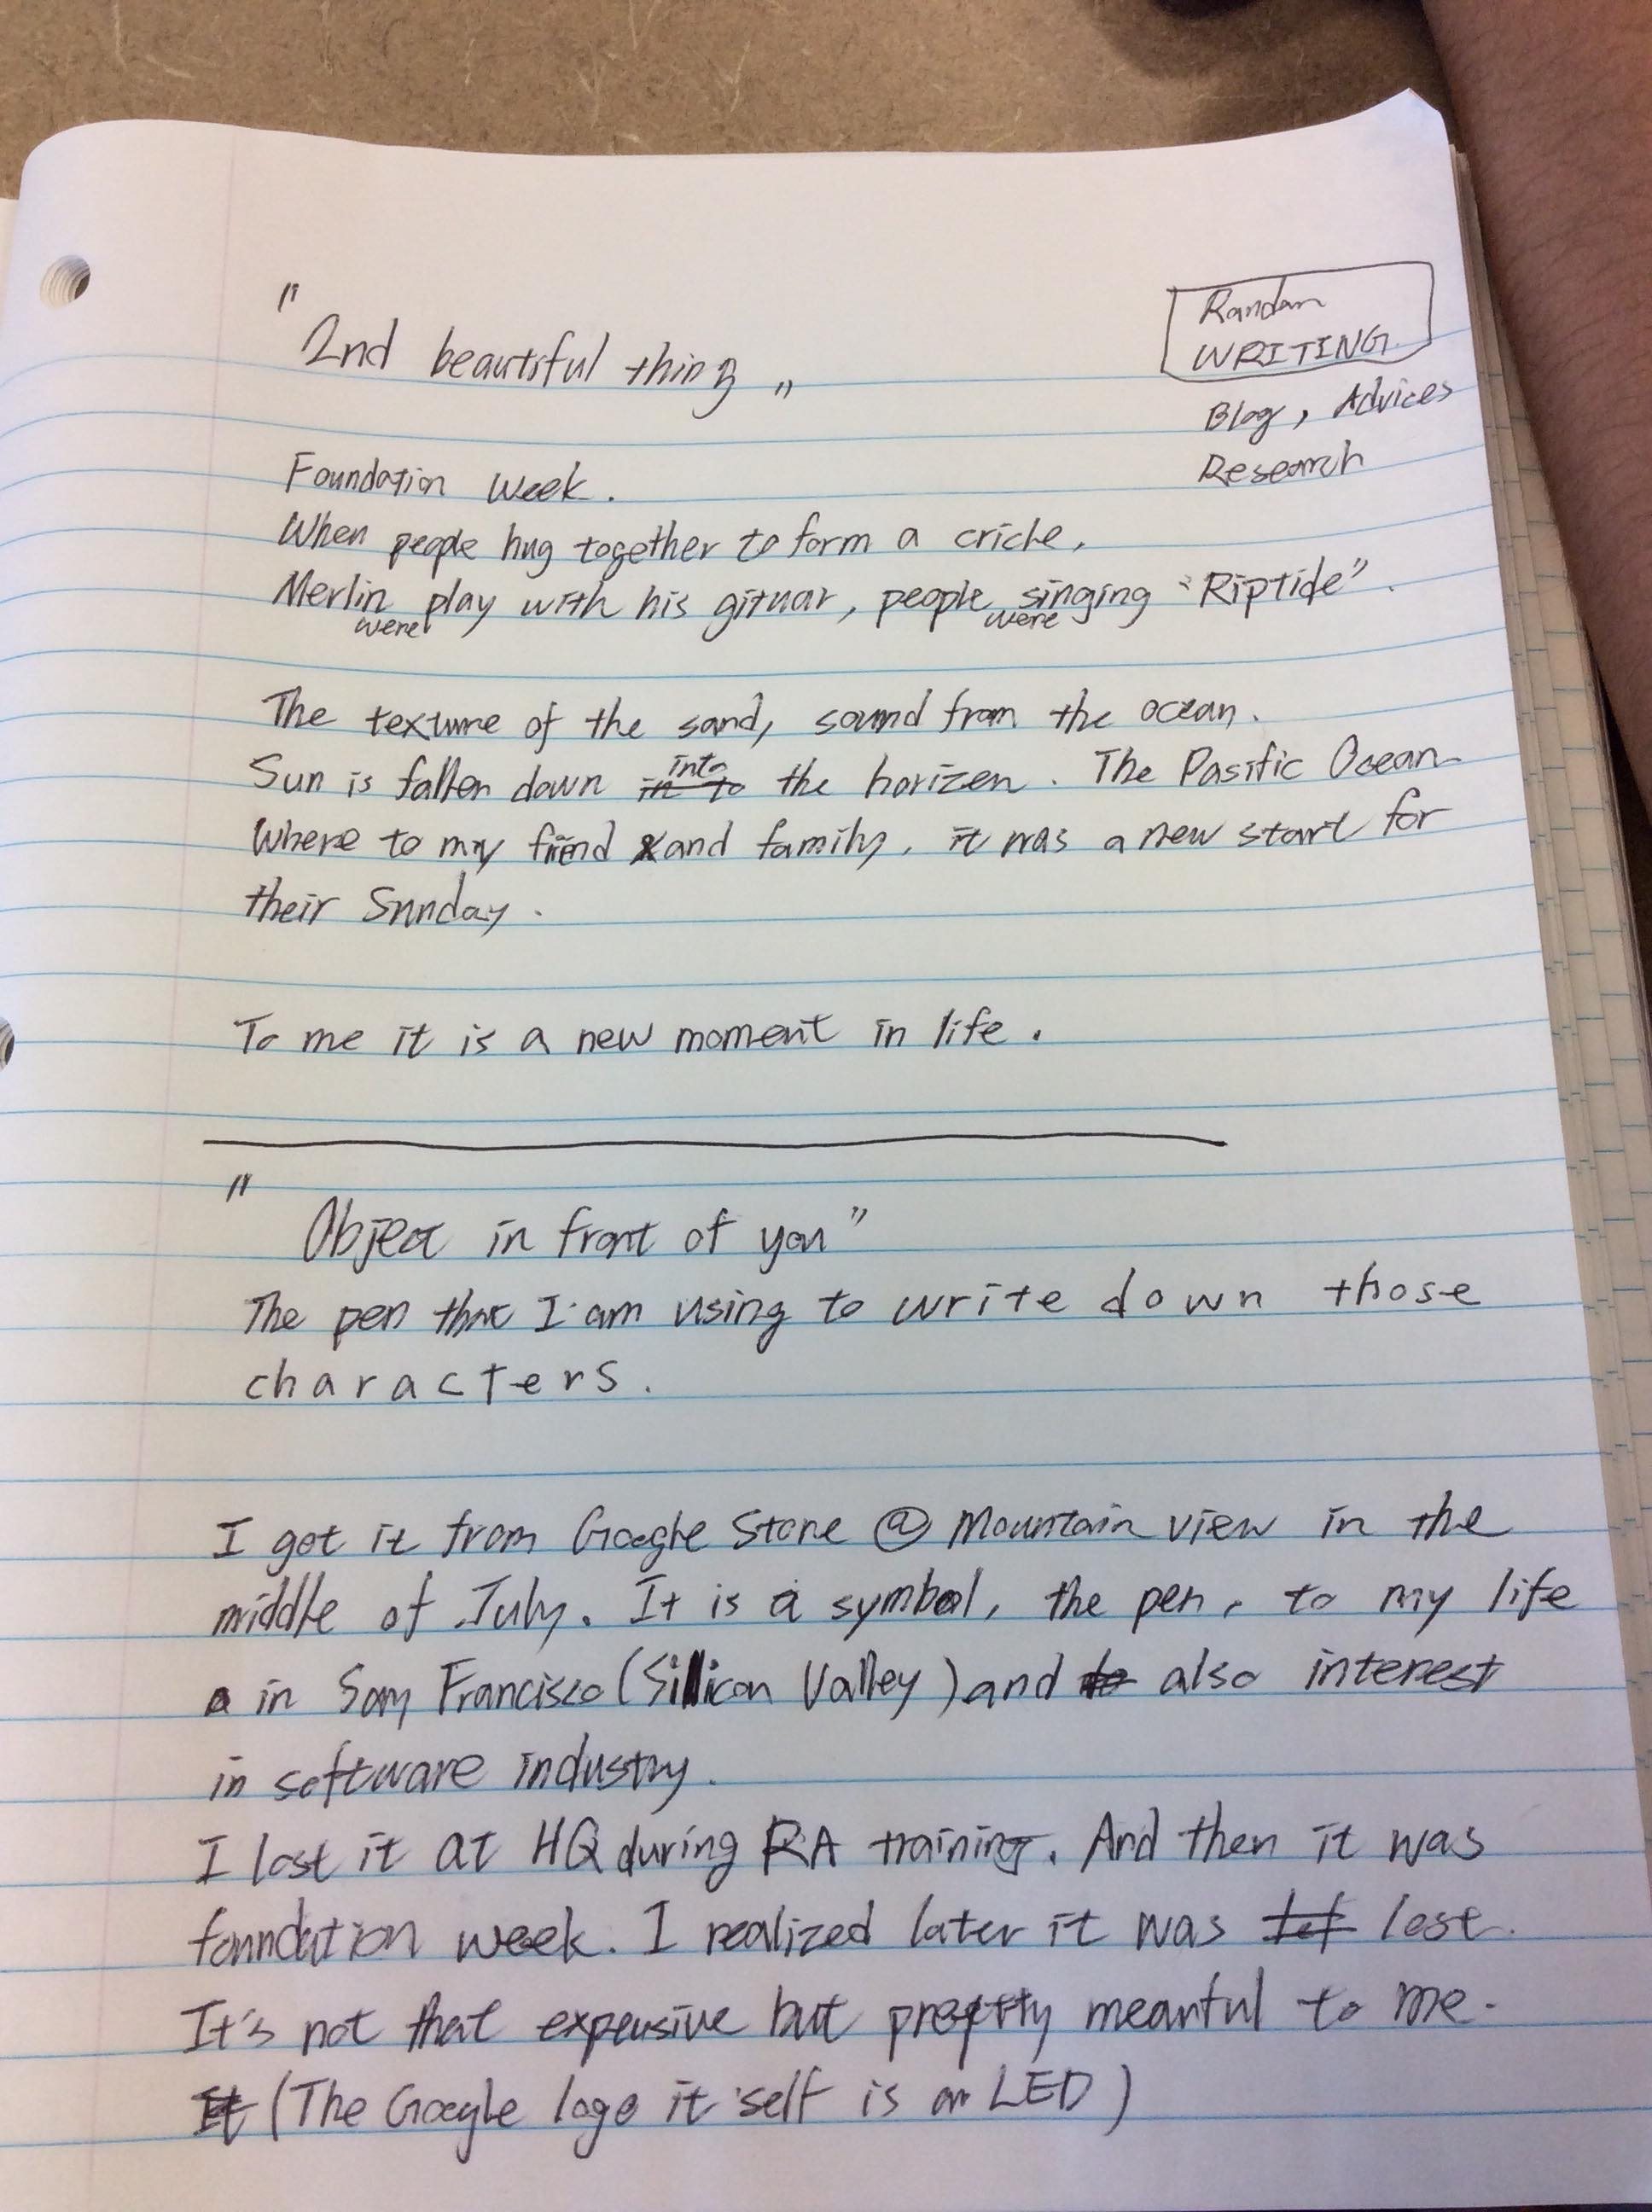 "2nd beautiful thing"
Random
WRITING
Blog, Advices
Research
Foundation Week.
When people hug together to form a cricle,
Merlin were play with his gituar, people were singing "Riptide".
The texture of the sand, sound from the ocean.
Sun is fallen down into the horizen. The Pasific Ocean
Where to my fiend and family, it was a new start for
their Sunday.
To me it is a new moment in life.
"Object in front of you"
The pen that I am using to write down those
characters.
I got it from Google Store @ Mountain view in the
middle of July. It is a symbol, the pen, to my life
in San Francisco (Sillicon Valley) and also interest
in software industry.
I lost it at HQ during RA training. And then it was
foundation week. I realized later it was lost.
It's not that expensive but pretty meanful to me.
(The Google logo it self is an LED)